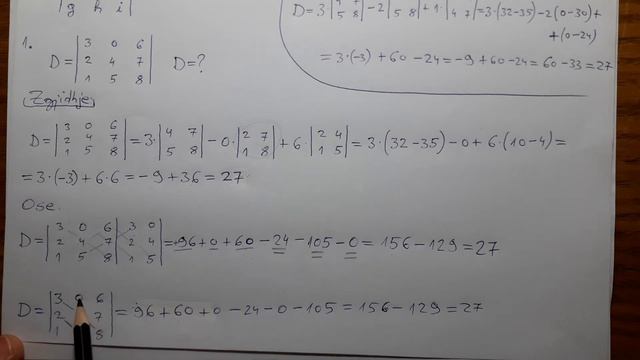 g h i
D = 3 |4 7; 5 8| - 2 |5 8| + 1· |4 7| = 3·(32-35) - 2(0-30) +
+ (0-24)
= 3·(-3) + 60 - 24 = -9 + 60 - 24 = 60 - 33 = 27
1.
D = |3 0 6; 2 4 7; 1 5 8| D = ?
Zgjidhje
D = |3 0 6; 2 4 7; 1 5 8| = 3·|4 7; 5 8| - 0·|2 7; 1 8| + 6·|2 4; 1 5| = 3·(32-35) - 0 + 6·(10-4) =
= 3·(-3) + 6·6 = -9 + 36 = 27
Ose.
D = |3 0 6; 2 4 7; 1 5 8| 3 0; 2 4; 1 5 = +96 + 0 + 60 - 24 - 105 - 0 = 156 - 129 = 27
D = |3 0 6; 2 7; 1 8| = 96 + 60 + 0 - 24 - 0 - 105 = 156 - 129 = 27